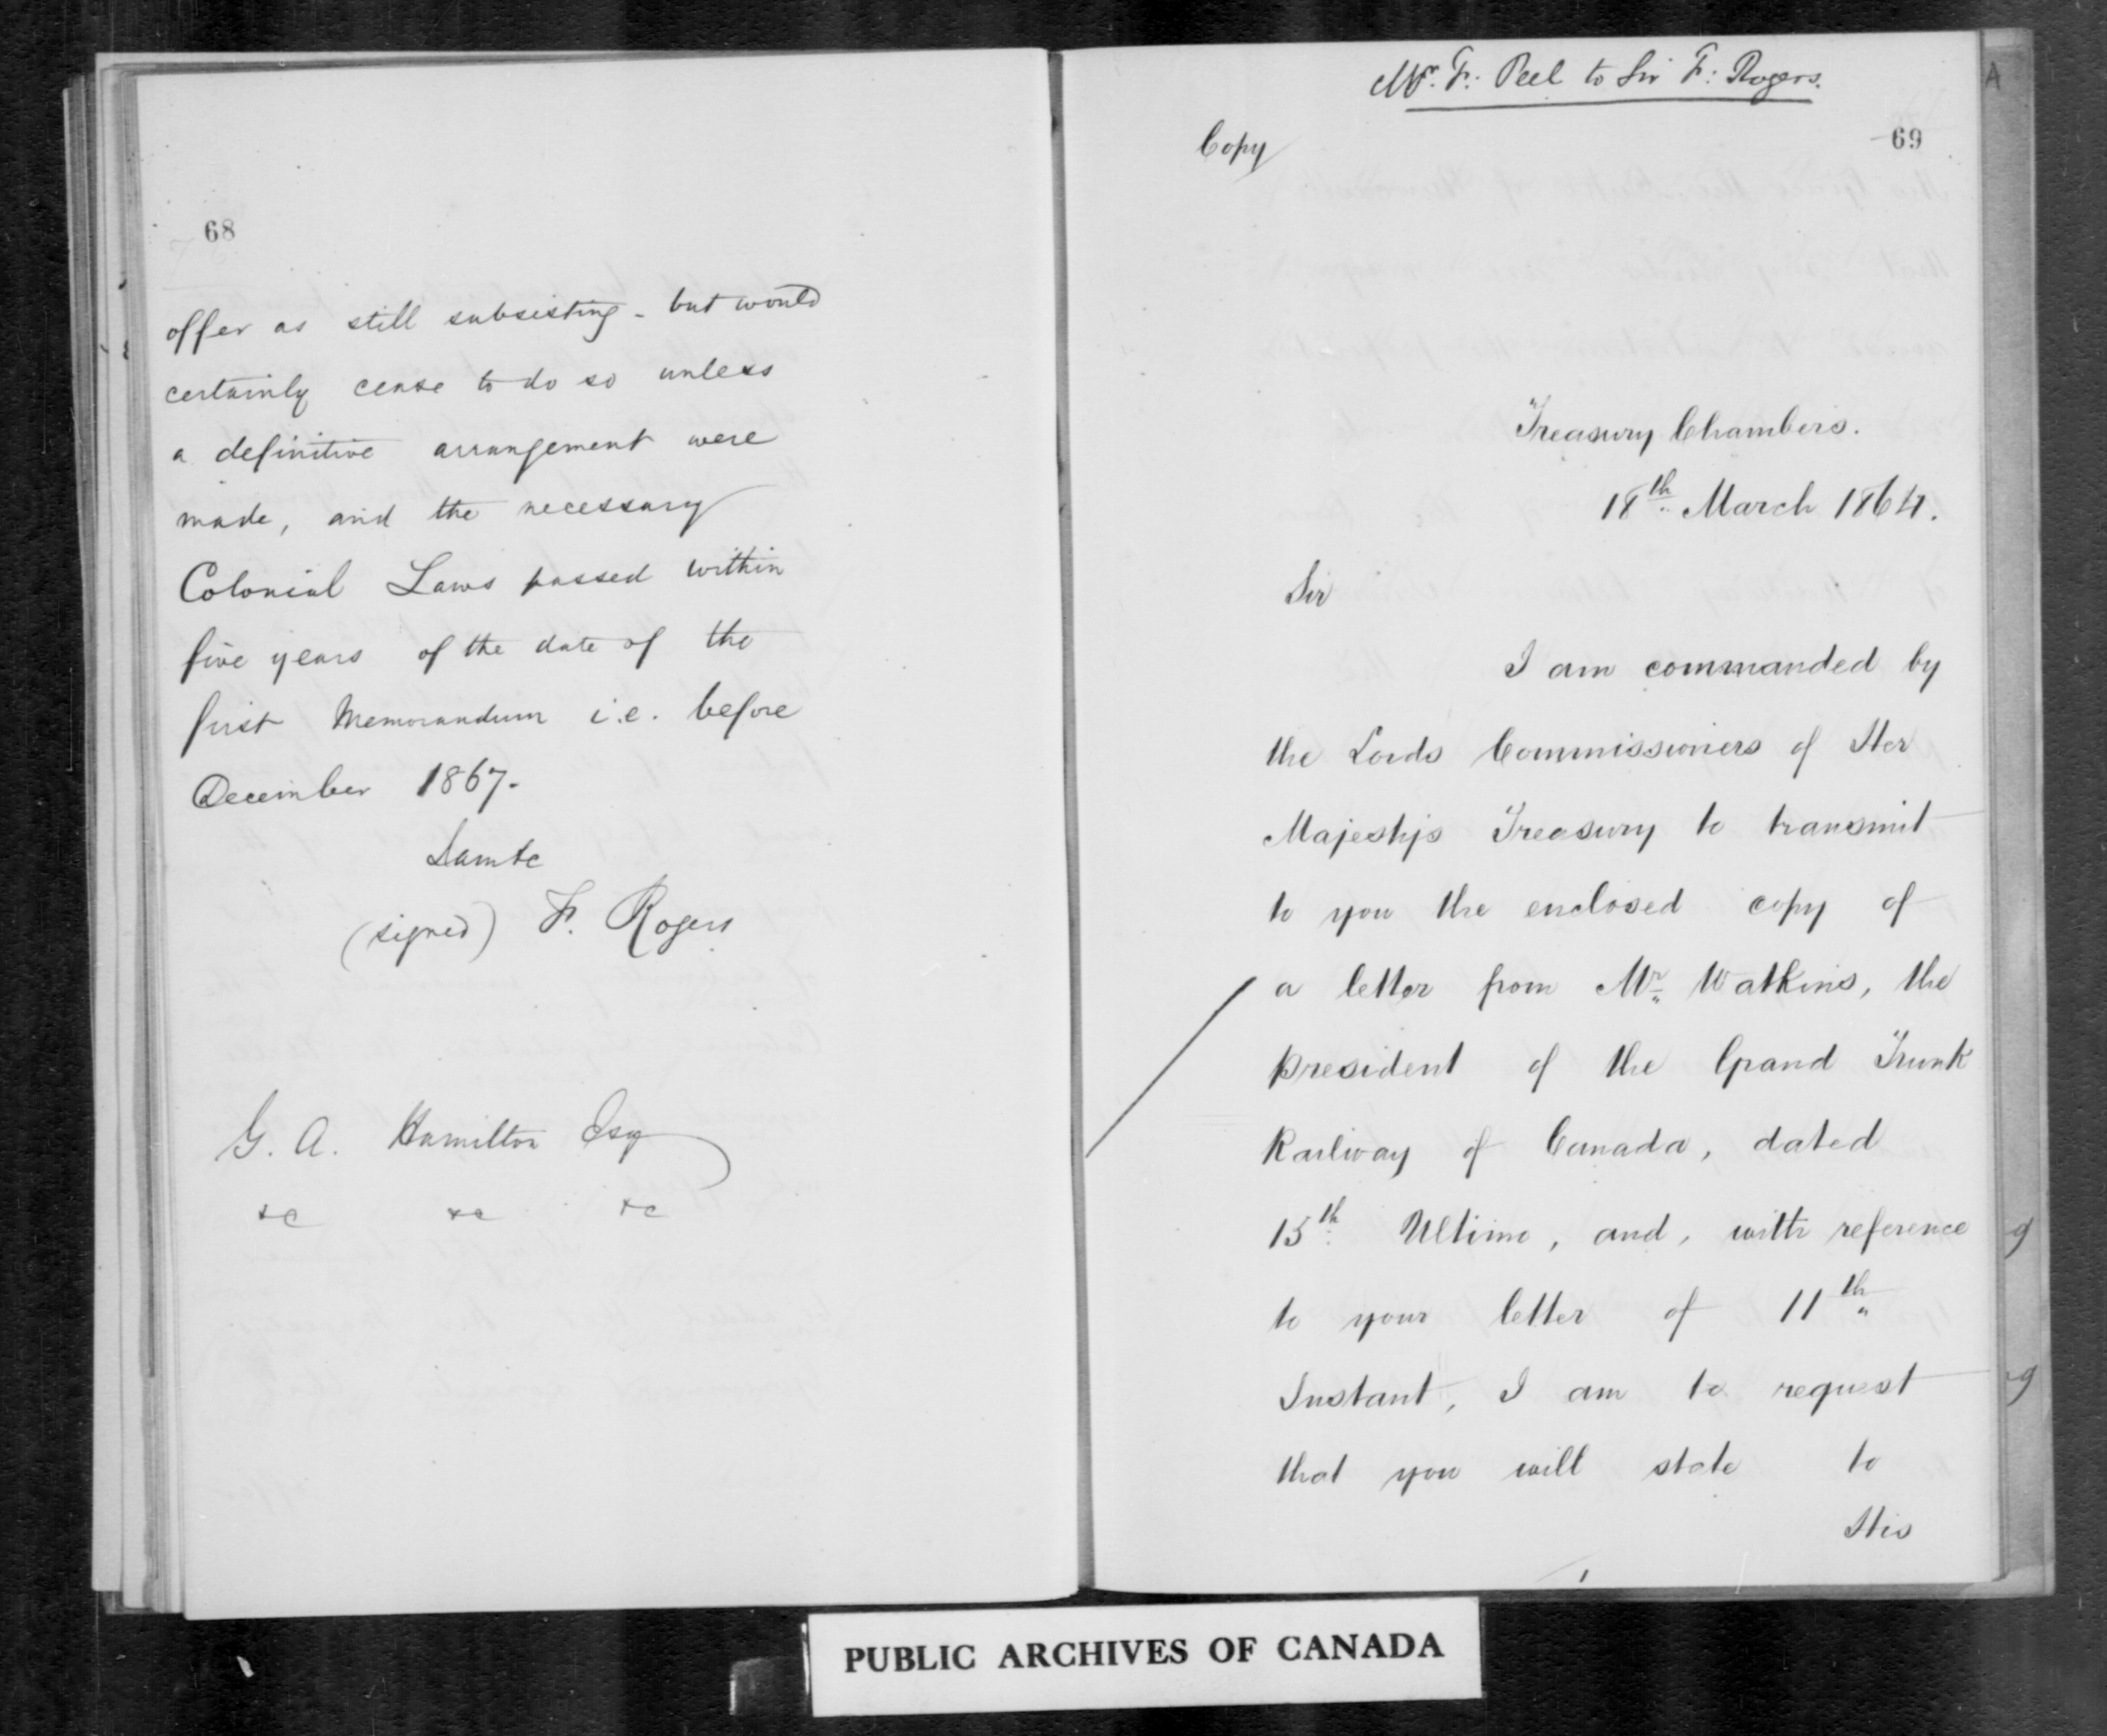 68
offer as still subsisting - but would
certainly cease to do so unless
a definitive arrangement were
made, and the necessary
Colonial Laws passed within
five years of the date of the
first Memorandum i.e. before
December 1867.
I am &c
(signed) F. Rogers
G. A. Hamilton Esq
&c &c &c
Mr. F. Peel to Sir F: Rogers.
Copy
69
Treasury Chambers.
18th March 1864.
Sir
I am commanded by
the Lords Commissioners of Her
Majesty's Treasury to transmit
to you the enclosed copy of
a letter from Mr. Watkins, the
president of the Grand Trunk
Railway of Canada, dated
15th Ultimo, and, with reference
to your letter of 11th
Instant, I am to request
that you will state to
His
A
g
g
PUBLIC ARCHIVES OF CANADA